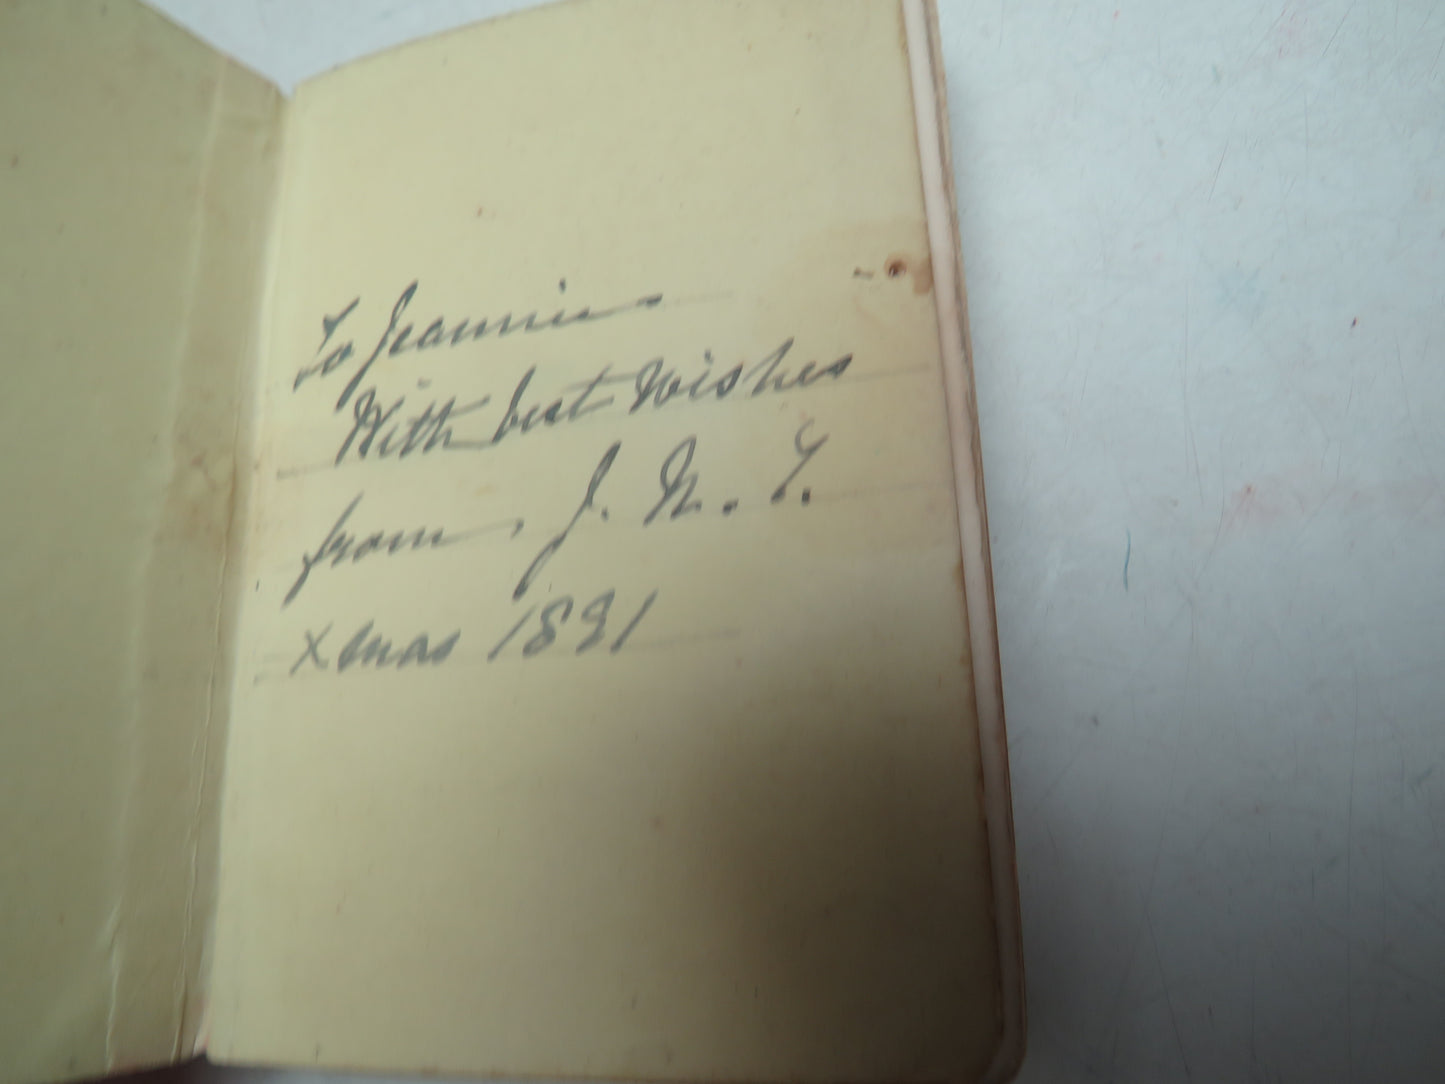 To Jeannie
With best Wishes
from, J. N. Y.
Xmas 1891